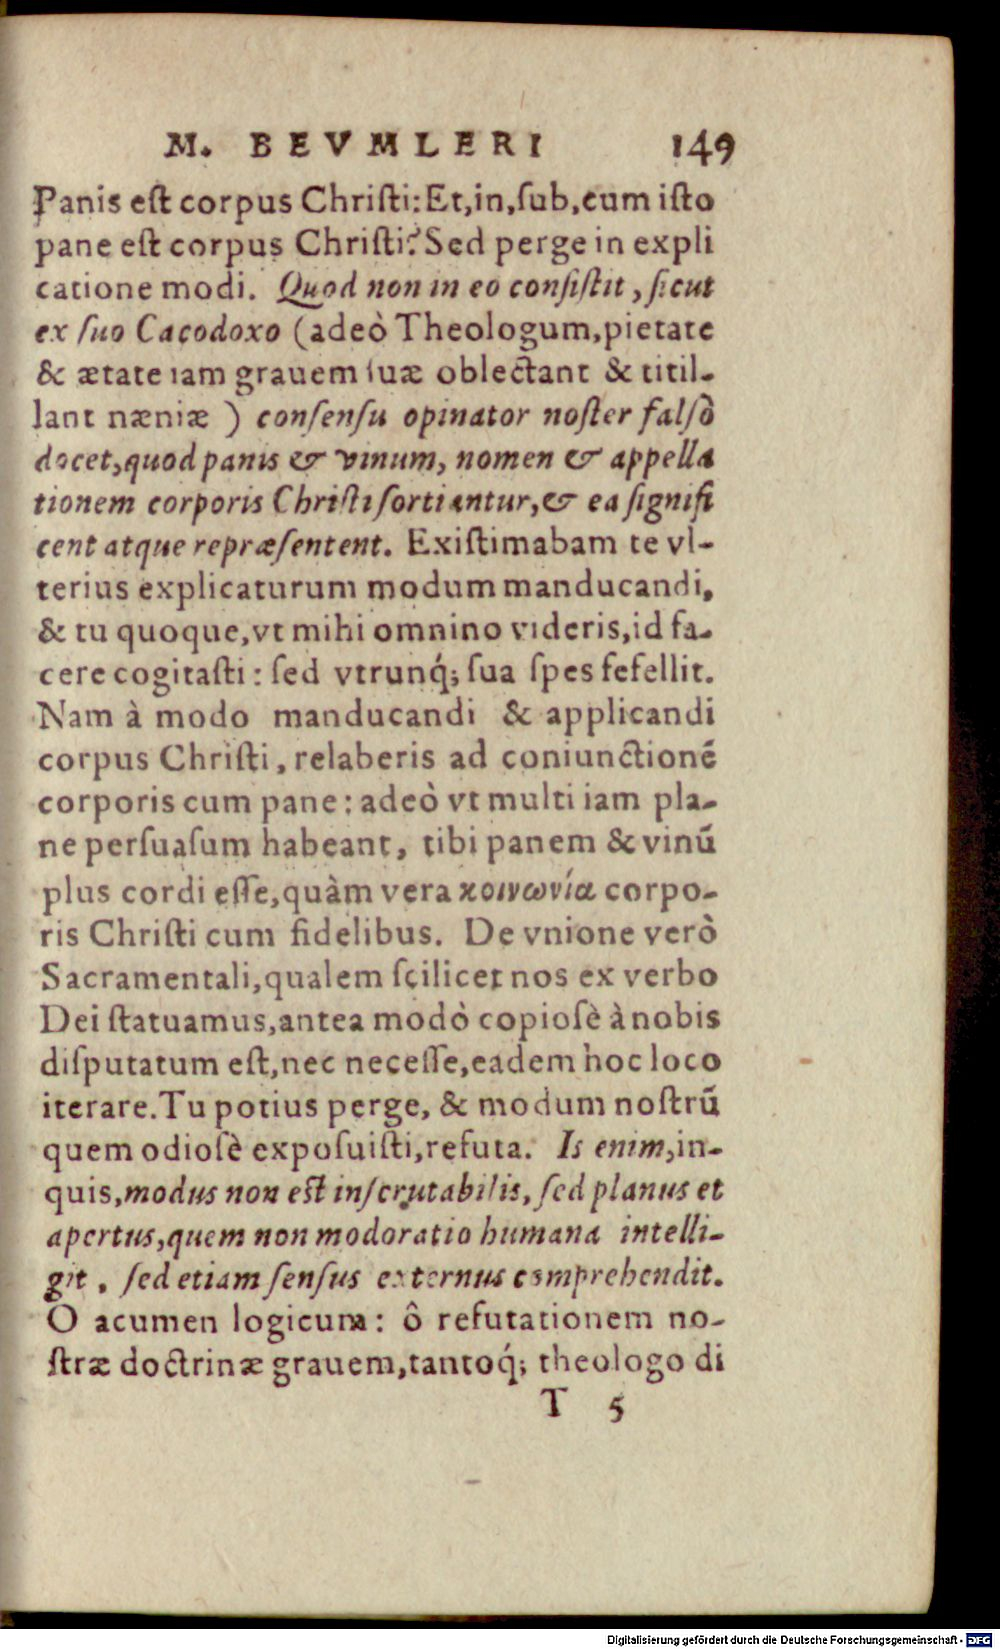 M. BEVMLERI 149
Panis eſt corpus Chriſti: Et, in, ſub, cum iſto
pane eſt corpus Chriſti? Sed perge in expli
catione modi. Quod non in eo conſiſtit, ſicut
ex ſuo Cacodoxo (adeò Theologum, pietate
& ætate iam grauem ſuæ oblectant & titil-
lant næniæ) conſenſu opinator noſter falſò
docet, quod panis & vinum, nomen & appella
tionem corporis Chriſti ſortiantur, & ea ſignifi
cent atque repræſentent. Exiſtimabam te vl-
terius explicaturum modum manducandi,
& tu quoque, vt mihi omnino videris, id fa-
cere cogitaſti: ſed vtrunq́; ſua ſpes fefellit.
Nam à modo manducandi & applicandi
corpus Chriſti, relaberis ad coniunctionē
corporis cum pane: adeò vt multi iam pla-
ne perſuaſum habeant, tibi panem & vinū
plus cordi eſſe, quàm vera κοινωνία corpo-
ris Chriſti cum fidelibus. De vnione verò
Sacramentali, qualem ſcilicet nos ex verbo
Dei ſtatuamus, antea modò copioſè à nobis
diſputatum eſt, nec neceſſe, eadem hoc loco
iterare. Tu potius perge, & modum noſtrū
quem odioſè expoſuiſti, refuta. Is enim, in-
quis, modus non eſt inſcrutabilis, ſed planus et
apertus, quem non modo ratio humana intelli-
git, ſed etiam ſenſus externus comprehendit.
O acumen logicum: ô refutationem no-
ſtræ doctrinæ grauem, tantoq́; theologo di
T 5
Digitalisierung gefördert durch die Deutsche Forschungsgemeinschaft - DFG